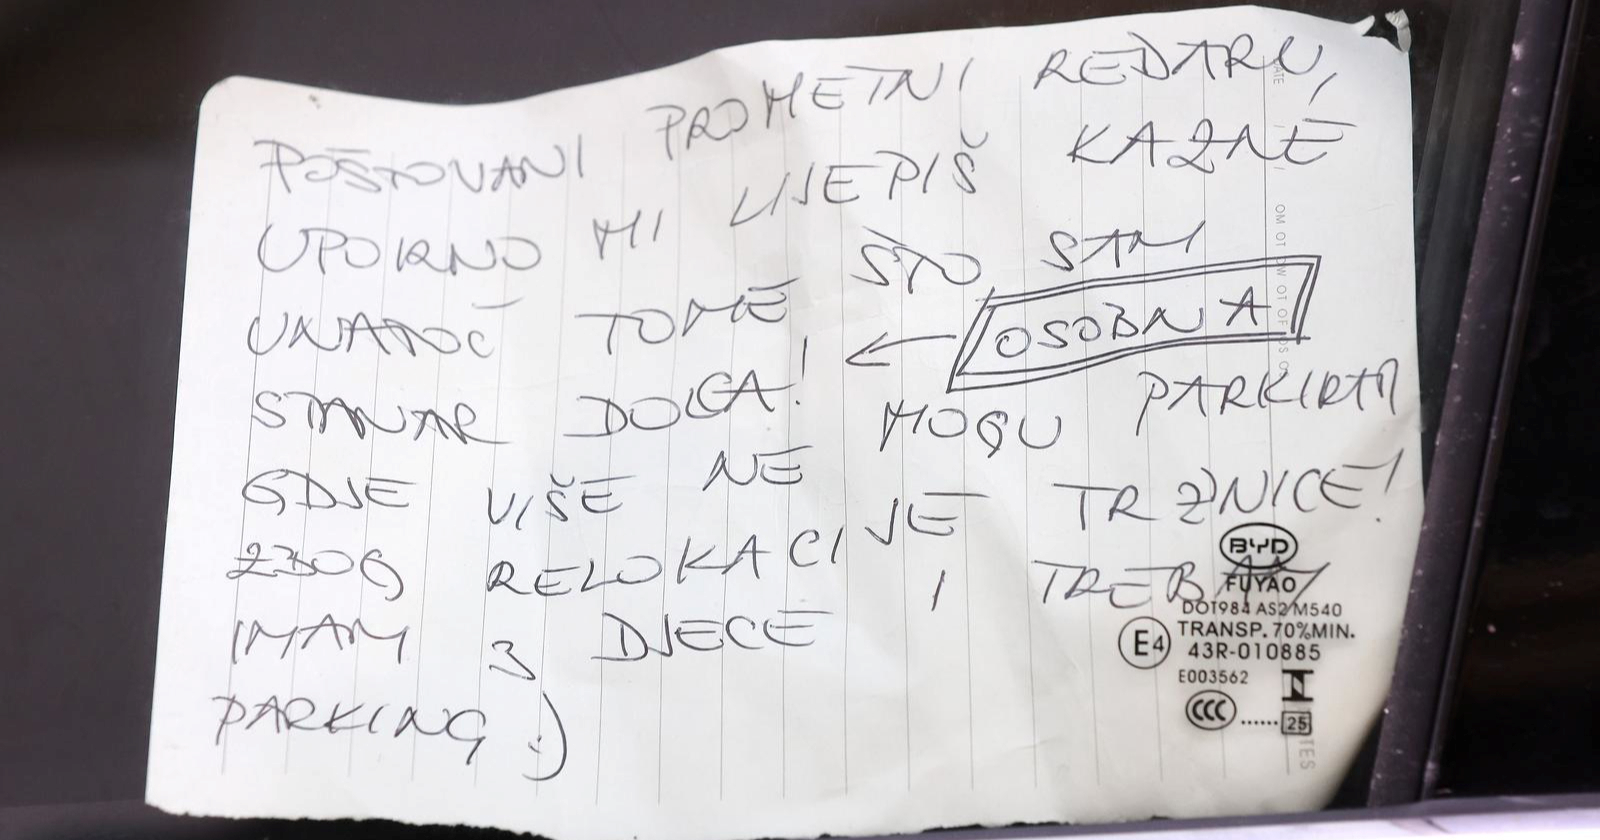 POŠTOVANI PROMETNI REDARU,
UPORNO MI LIJEPIŠ KAZNE
UNATOČ TOME ŠTO SAM
STANAR DOLCA! ← OSOBNA
GDJE VIŠE NE MOGU PARKIRATI
ZBOG RELOKACIJE TRŽNICE!
IMAM 3 DJECE I TREBAM
PARKING :)
BYD
FUYAO
DOT984 AS2 M540
TRANSP. 70%MIN.
E4 43R-010885
E003562
CCC ...... 25